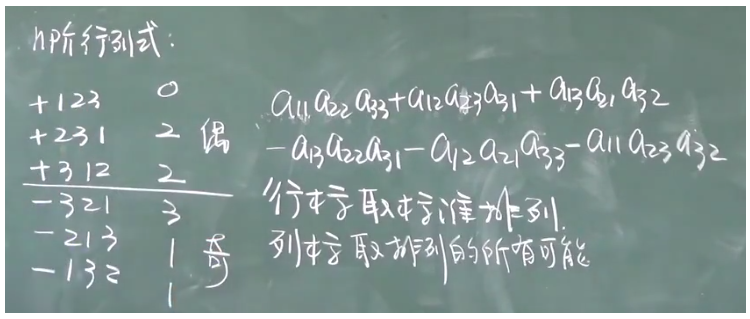 n阶行列式:
+123 0
+231 2 偶
+312 2
-321 3
-213 1 奇
-132 1
a11a22a33+a12a23a31+a13a21a32
-a13a22a31-a12a21a33-a11a23a32
行标取标准排列.
列标取排列的所有可能